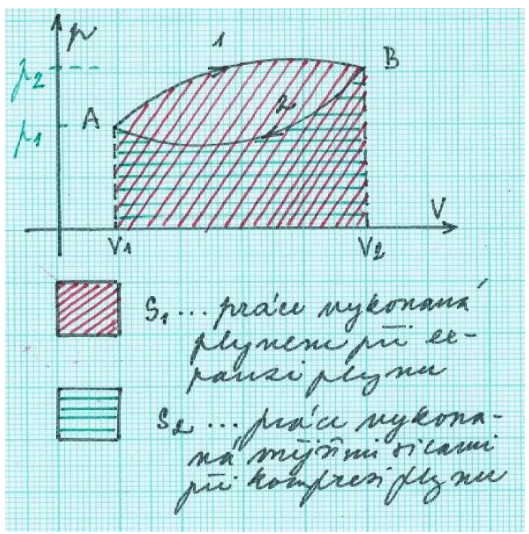 p
1
p₂
B
2
A
p₁
V
V₁
V₂
S₁ ... práce vykonaná
plynem při ex-
panzi plynu
S₂ ... práce vykona-
ná vnějšími silami
při kompresi plynu